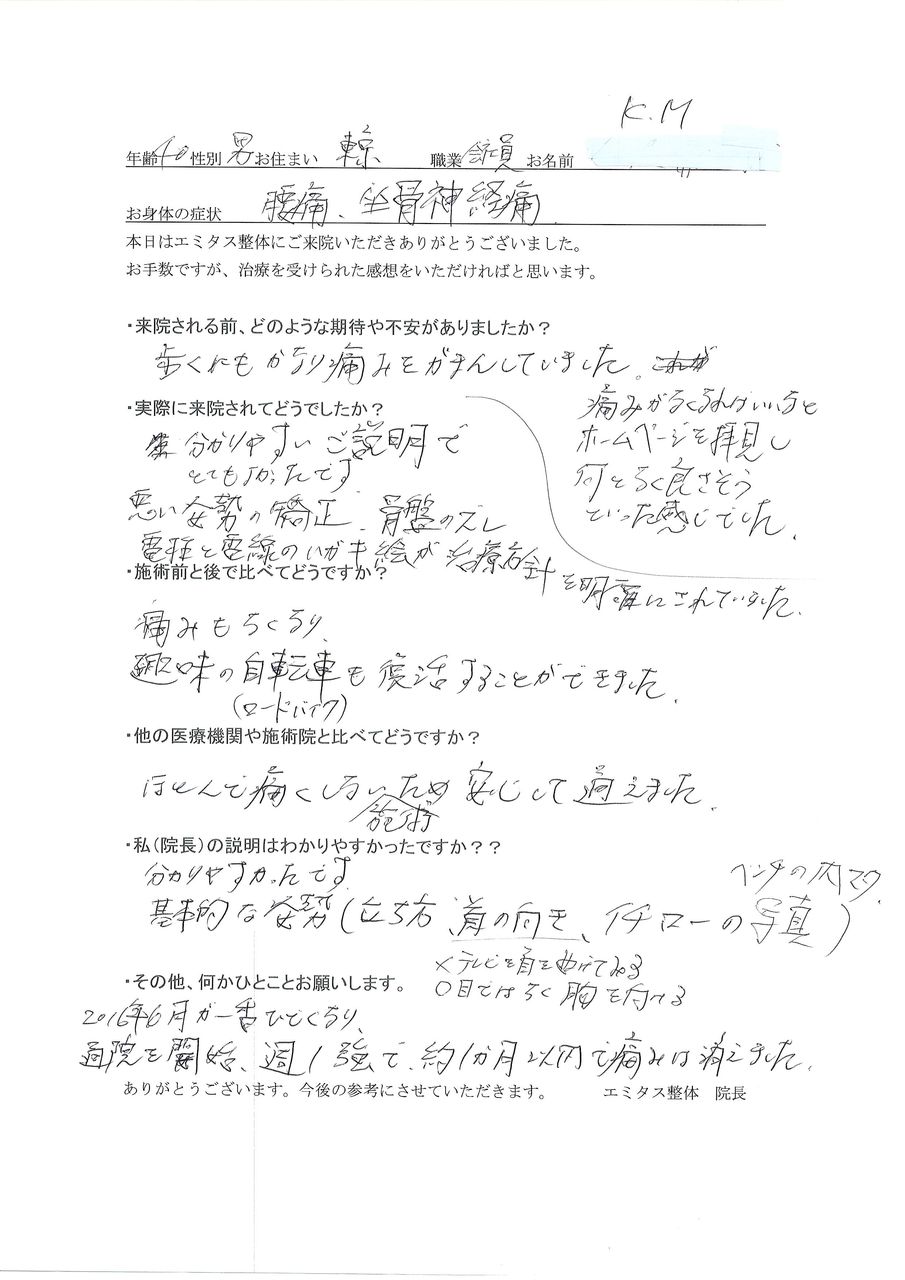 K.M
年齢40性別 男 お住まい 東京 職業 会社員 お名前
お身体の症状 腰痛、坐骨神経痛
本日はエミタス整体にご来院いただきありがとうございました。
お手数ですが、治療を受けられた感想をいただければと思います。
・来院される前、どのような期待や不安がありましたか？
歩くにもかなり痛みをがまんしていました。
痛みがなくなればいいなと
ホームページを拝見し
何となく良さそう
といった感じでした。
・実際に来院されてどうでしたか？
分かりやすいご説明で
とてもよかったです
悪い姿勢の矯正、骨盤のズレ
電柱と電線のハガキ絵が治療方針を明確にされていました。
・施術前と後で比べてどうですか？
痛みもなくなり、
趣味の自転車も復活することができました。
(ロードバイク)
・他の医療機関や施術院と比べてどうですか？
ほとんど痛くしないため安心して通えました。
施術
・私(院長)の説明はわかりやすかったですか？？
分かりやすかったです
ベンチの内マタ
基本的な姿勢(立ち方、首の向き、イチローの写真)
×テレビを首を曲げてみる
○目ではなく胸を向ける
・その他、何かひとことお願いします。
2016年6月が一番ひどくなり、
通院を開始、週1強で、約1か月以内で痛みは消えました。
ありがとうございます。今後の参考にさせていただきます。 エミタス整体 院長